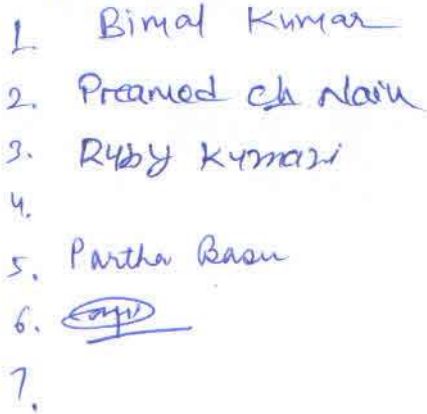 1. Bimal Kumar
2. Preamod ch Naik
3. Ruby Kumari
4.
5. Partha Basu
6.
7.